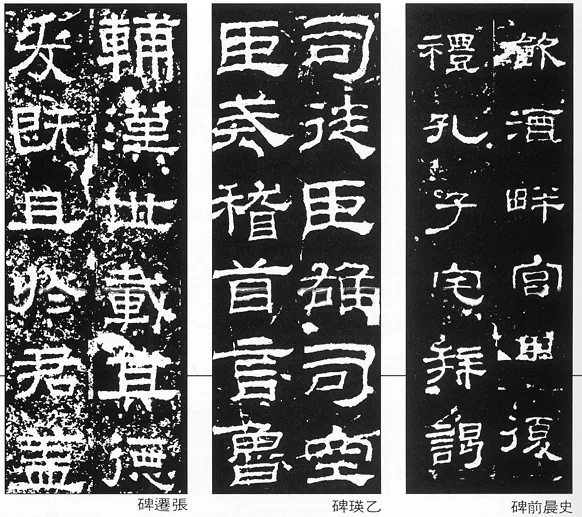 飲酒畔宮畢復
禮孔子宅拜謁
史晨前碑
司徒臣雄司空
臣戒稽首言魯
乙瑛碑
輔漢世載其德
爰既且於君蓋
張遷碑